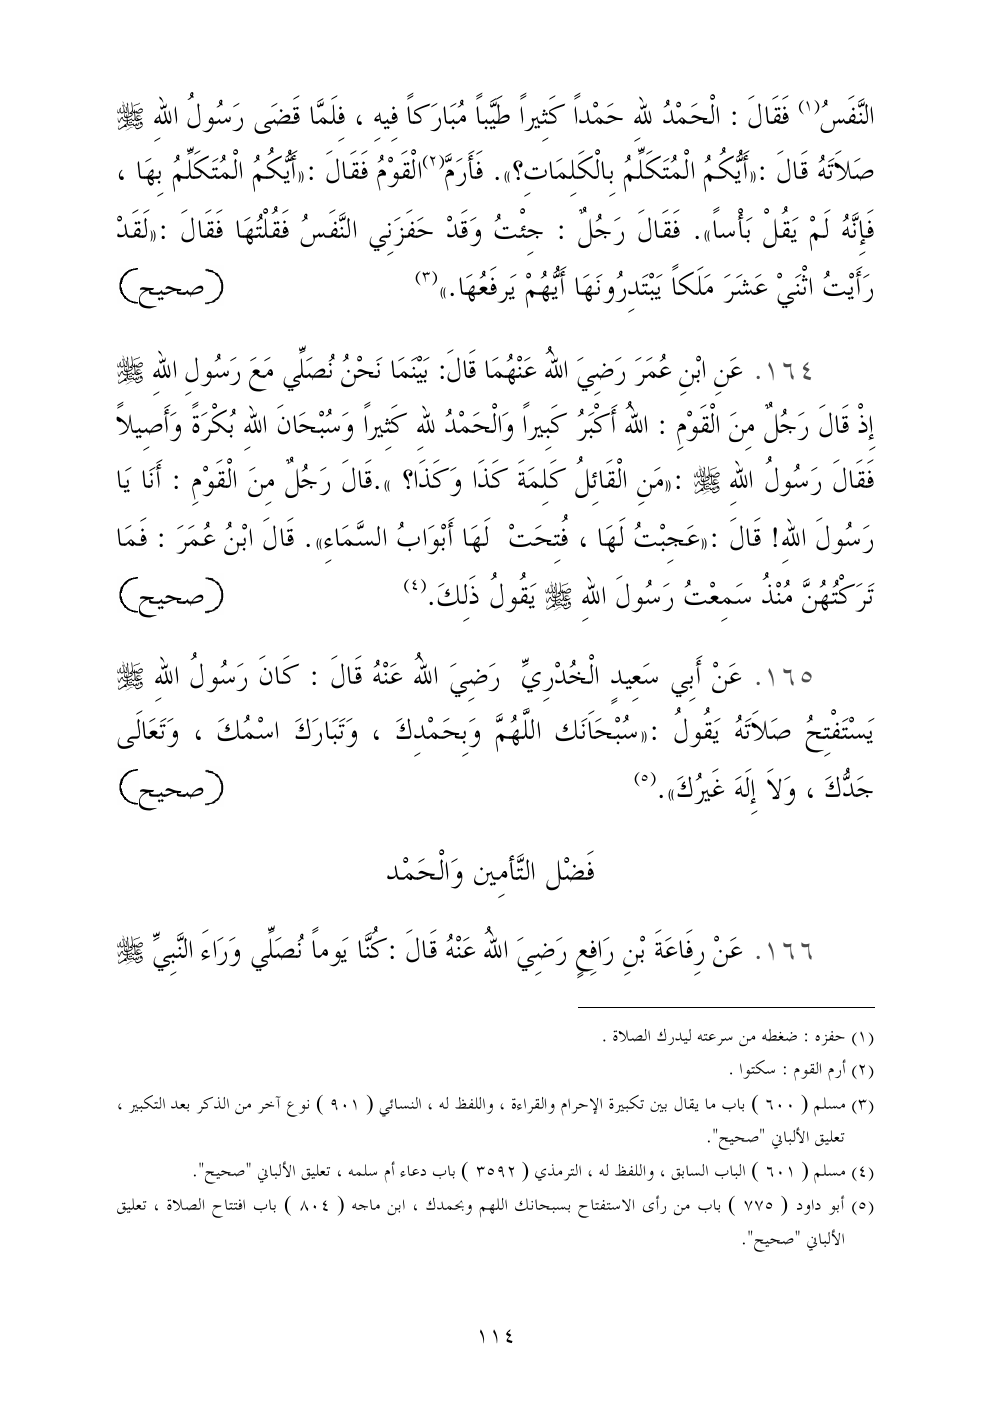 النَّفَسُ(١) فَقَالَ : الْحَمْدُ للهِ حَمْداً كَثِيراً طَيَّباً مُبَارَكاً فِيهِ ، فَلَمَّا قَضَى رَسُولُ اللهِ ﷺ
صَلاَتَهُ قَالَ :«أَيُّكُمُ الْمُتَكَلِّمُ بِالْكَلِمَاتِ؟». فَأَرَمَّ(٢)الْقَوْمُ فَقَالَ :«أَيُّكُمُ الْمُتَكَلِّمُ بِهَا ،
فَإِنَّهُ لَمْ يَقُلْ بَأْساً». فَقَالَ رَجُلٌ : جِئْتُ وَقَدْ حَفَزَنِي النَّفَسُ فَقُلْتُهَا فَقَالَ :«لَقَدْ
رَأَيْتُ اثْنَيْ عَشَرَ مَلَكاً يَبْتَدِرُونَهَا أَيُّهُمْ يَرفَعُهَا.»(٣) (صحيح)
١٦٤. عَنِ ابْنِ عُمَرَ رَضِيَ اللهُ عَنْهُمَا قَالَ: بَيْنَمَا نَحْنُ نُصَلِّي مَعَ رَسُولِ اللهِ ﷺ
إِذْ قَالَ رَجُلٌ مِنَ الْقَوْمِ : اللهُ أَكْبَرُ كَبِيراً وَالْحَمْدُ للهِ كَثِيراً وَسُبْحَانَ اللهِ بُكْرَةً وَأَصِيلاً
فَقَالَ رَسُولُ اللهِ ﷺ :«مَنِ الْقَائِلُ كَلِمَةَ كَذَا وَكَذَا؟ ».قَالَ رَجُلٌ مِنَ الْقَوْمِ : أَنَا يَا
رَسُولَ اللهِ! قَالَ :«عَجِبْتُ لَهَا ، فُتِحَتْ لَهَا أَبْوَابُ السَّمَاءِ». قَالَ ابْنُ عُمَرَ : فَمَا
تَرَكْتُهُنَّ مُنْذُ سَمِعْتُ رَسُولَ اللهِ ﷺ يَقُولُ ذَلِكَ.(٤) (صحيح)
١٦٥. عَنْ أَبِي سَعِيدٍ الْخُدْرِيِّ رَضِيَ اللهُ عَنْهُ قَالَ : كَانَ رَسُولُ اللهِ ﷺ
يَسْتَفْتِحُ صَلاَتَهُ يَقُولُ :«سُبْحَاَنَك اللَّهُمَّ وَبِحَمْدِكَ ، وَتَبَارَكَ اسْمُكَ ، وَتَعَالَى
جَدُّكَ ، وَلاَ إِلَهَ غَيرُكَ».(٥) (صحيح)
فَضْل التَّأمِين وَالْحَمْد
١٦٦. عَنْ رِفَاعَةَ بْنِ رَافِعٍ رَضِيَ اللهُ عَنْهُ قَالَ :كُنَّا يَوماً نُصَلِّي وَرَاءَ النَّبِيِّ ﷺ
(١) حفزه : ضغطه من سرعته ليدرك الصلاة .
(٢) أرم القوم : سكتوا .
(٣) مسلم ( ٦٠٠ ) باب ما يقال بين تكبيرة الإحرام والقراءة ، واللفظ له ، النسائي ( ٩٠١ ) نوع آخر من الذكر بعد التكبير ،
تعليق الألباني "صحيح".
(٤) مسلم ( ٦٠١ ) الباب السابق ، واللفظ له ، الترمذي ( ٣٥٩٢ ) باب دعاء أم سلمه ، تعليق الألباني "صحيح".
(٥) أبو داود ( ٧٧٥ ) باب من رأى الاستفتاح بسبحانك اللهم وبحمدك ، ابن ماجه ( ٨٠٤ ) باب افتتاح الصلاة ، تعليق
الألباني "صحيح".
١١٤